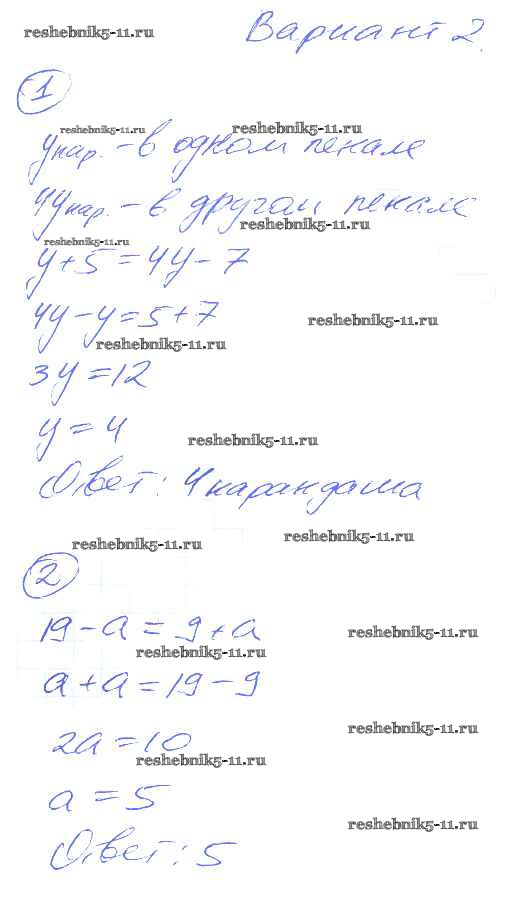 reshebnik5-11.ru
Вариант 2.
1
reshebnik5-11.ru reshebnik5-11.ru
y кар. - в одном пенале
4y кар. - в другом пенале
reshebnik5-11.ru
reshebnik5-11.ru
y + 5 = 4y - 7
4y - y = 5 + 7
reshebnik5-11.ru
reshebnik5-11.ru
3y = 12
y = 4
reshebnik5-11.ru
Ответ: 4 карандаша
reshebnik5-11.ru
reshebnik5-11.ru
2
19 - a = 9 + a
reshebnik5-11.ru
reshebnik5-11.ru
a + a = 19 - 9
reshebnik5-11.ru
2a = 10
reshebnik5-11.ru
a = 5
reshebnik5-11.ru
Ответ: 5